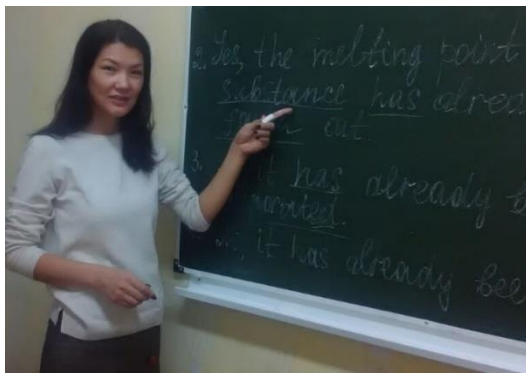 2. Yes, the melting point
substance has alrea
out.
3. it has already b
it has already bee